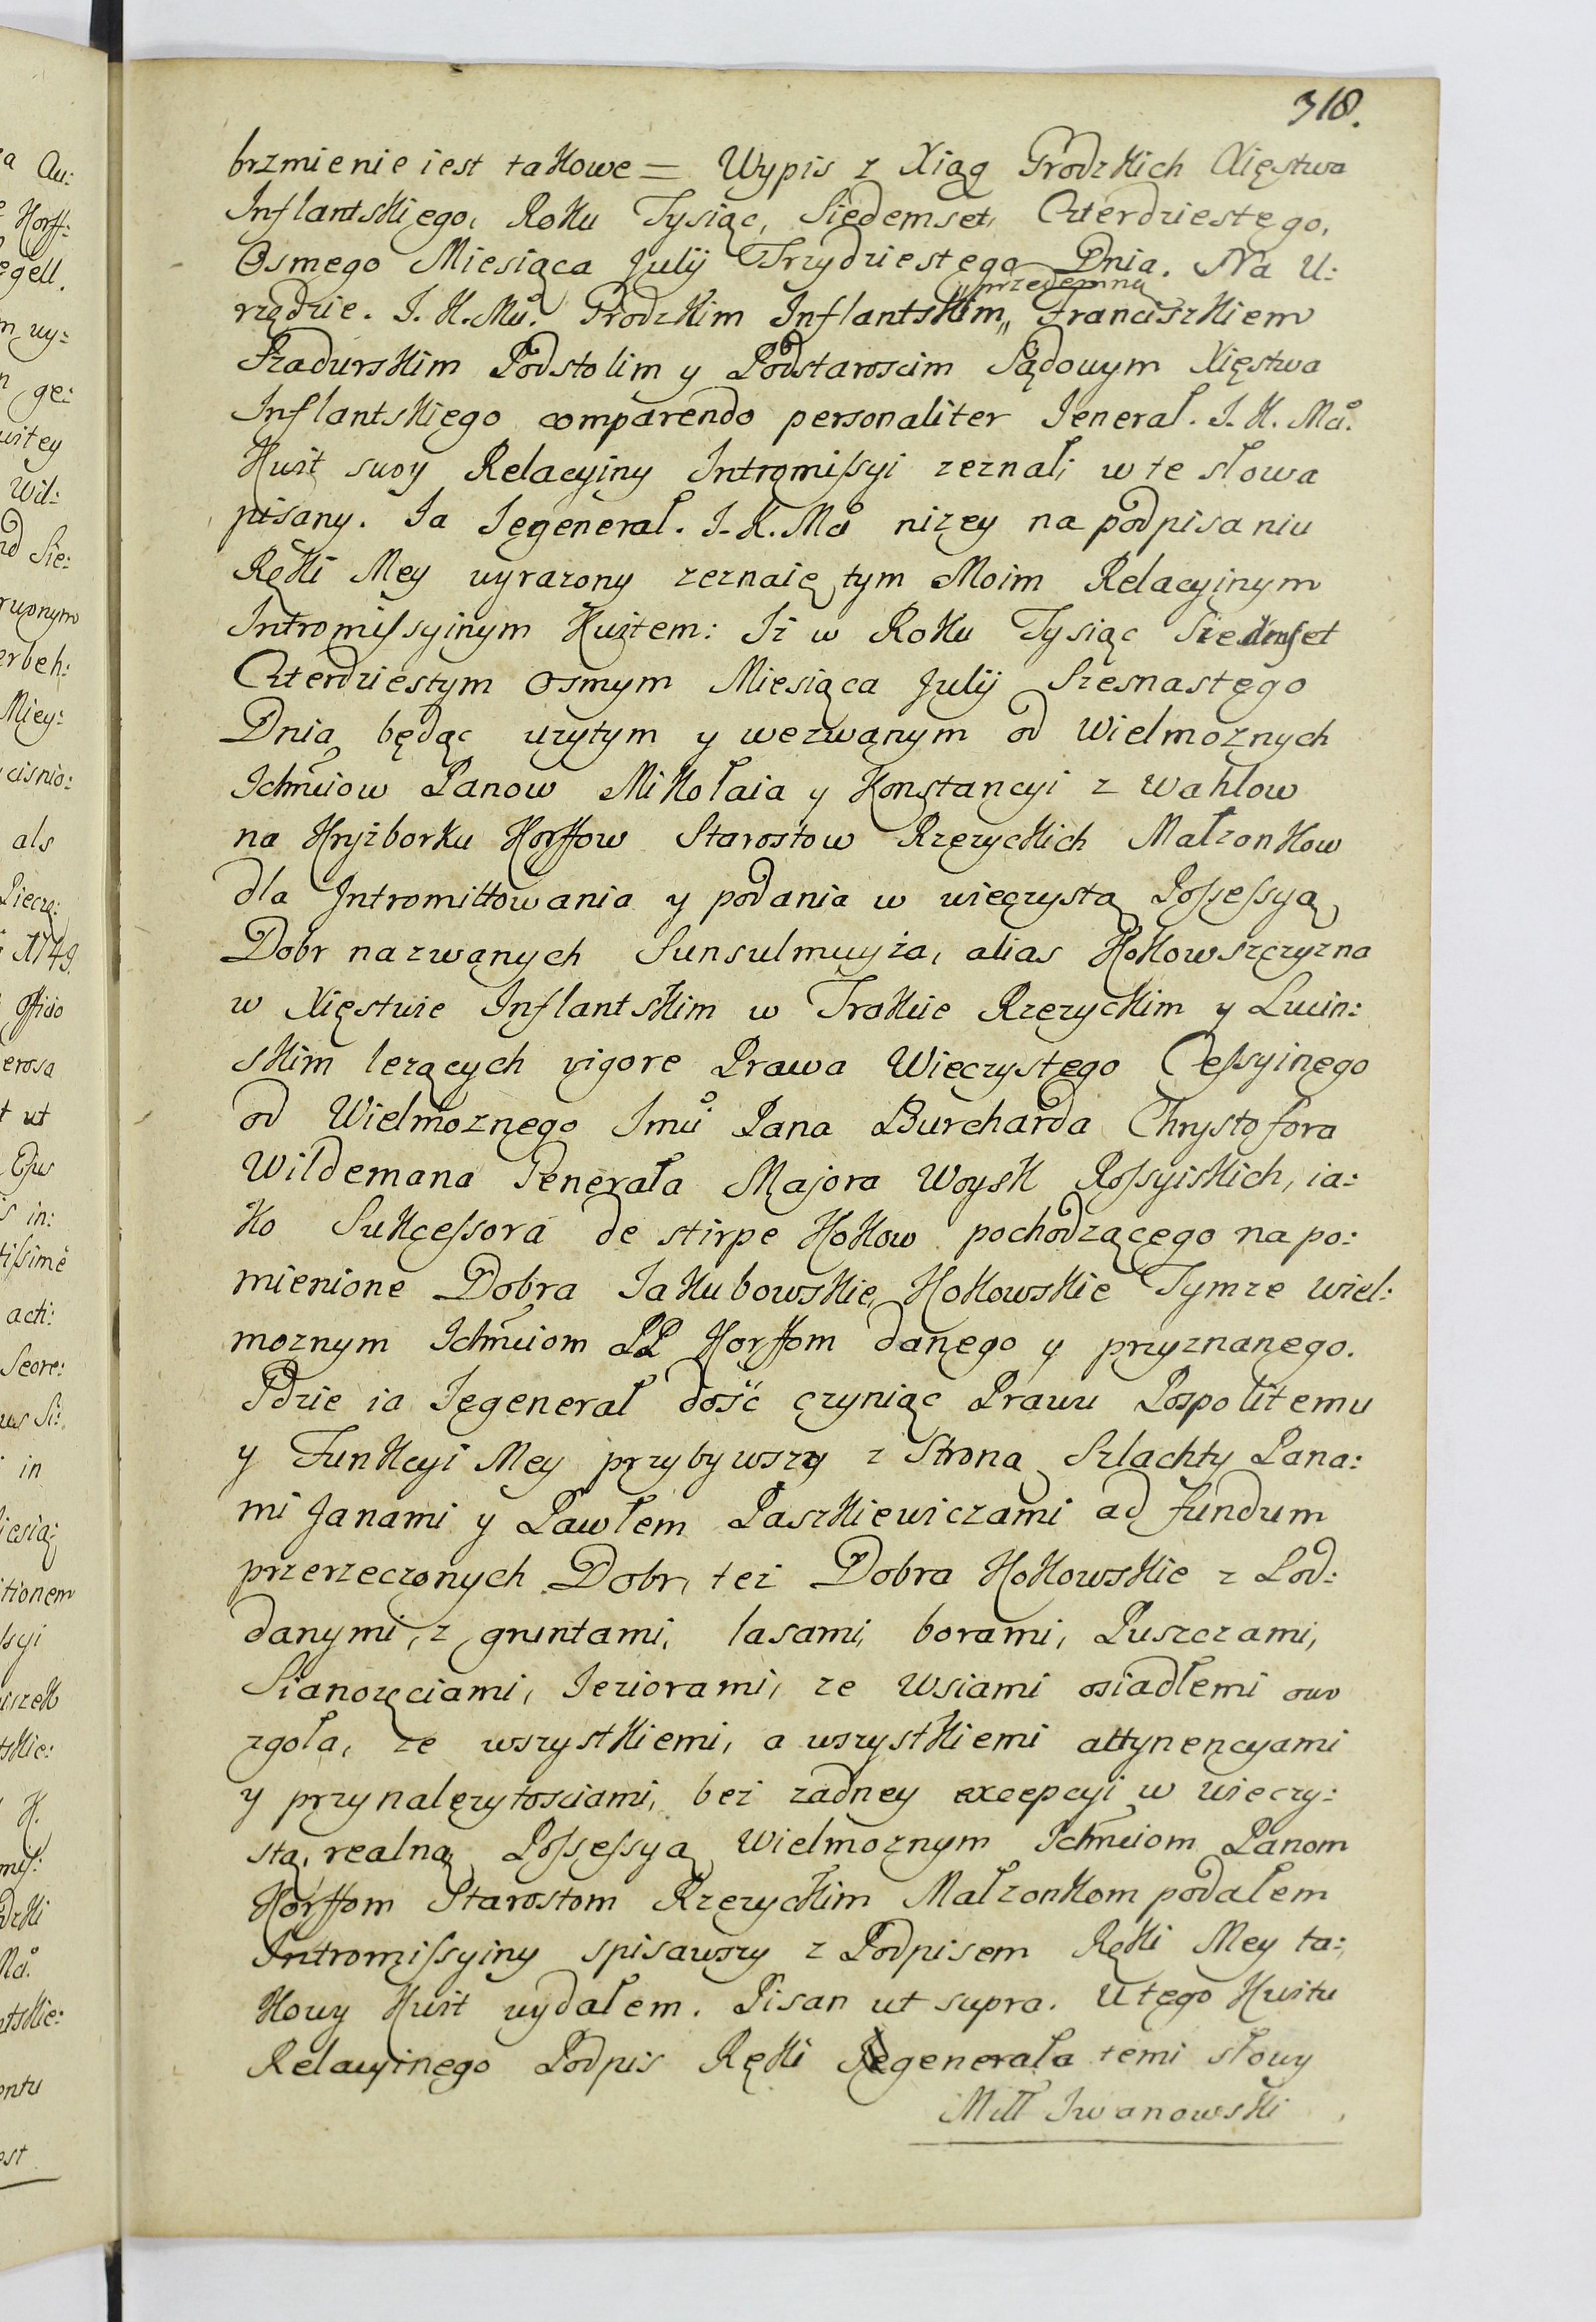 318.
brzmienie iest takowe = Wypis z Xiąg Grodzkich Xięstwa
Inflantskiego, Roku Tysiąc, Siedemset, Czterdziestego,
Osmego Miesiąca Julij Trzydziestego Dnia. Na U:
przedemną
rzędzie. J. K. Mći. Grodzkim Inflantskim,, Franciszkiem
Szadurskim Podstolim y Podstaroscim Sądowym Xięstwa
Inflantskiego comparendo personaliter Jenerał. J. K. Mći.
Kwit swoy Relacyiny Intromissyi zeznał, w te słowa
pisany. Ja Jęgenerał. J. K. Mći nizey na podpisaniu
Ręki Mey wyrazony zeznaię tym Moim Relacyinym
Intromissyinym Kwitem: Iż w Roku Tysiąc Siedmset
Czterdziestym Osmym Miesiąca Julij Szesnastego
Dnia będąc uzytym y wezwanym od Wielmoznych
Ichmciow Panow Mikołaia y Konstancyi z Wahlow
na Kryżborku Korffow Starostow Rzezyckich Małzonkow
dla Intromittowania y podania w wieczystą Possessyą
Dobr nazwanych Sunsulmuyża, alias Kokowszczyzna
w Xięstwie Inflantskim w Trakcie Rzezyckim y Lucin:
skim lezących vigore Prawa Wieczystego Cessyinego
od Wielmoznego Jmći Pana Burcharda Chrystofora
Wildemana Generała Majora Woysk Rossyiskich, ia:
ko Sukcessora de stirpe Kokow pochodzącego na po:
mienione Dobra Jakubowskie, Kokowskie Tymze Wiel:
moznym Ichmciom PP Korffom danego y przyznanego.
Gdzie ia Jęgenerał dość czyniąc Prawu Pospolitemu
y Funkcyi Mey przybywszy z Stroną Szlachty Pana:
mi Janami y Pawłem Paszkiewiczami ad fundum
przerzeczonych Dobr, też Dobra Kokowskie z Pod:
danymi, z gruntami, lasami, borami, Puszczami,
Sianożęciami, Jeziorami, ze Wsiami osiadłemi owo
zgoła, ze wszystkiemi, a wszystkiemi attynencyami
y przynalezytosciami, bez zadney excepcyi w wieczy:
stą, realną Possessyą Wielmoznym Ichmciom Panom
Korffom Starostom Rzezyckim Małzonkom podałem
Intromissyiny spisawszy z Podpisem Ręki Mey ta:
kowy Kwit wydałem. Pisan ut supra. U tego Kwitu
Relacyinego Podpis Ręki Jegenerała temi słowy
Iwanowski